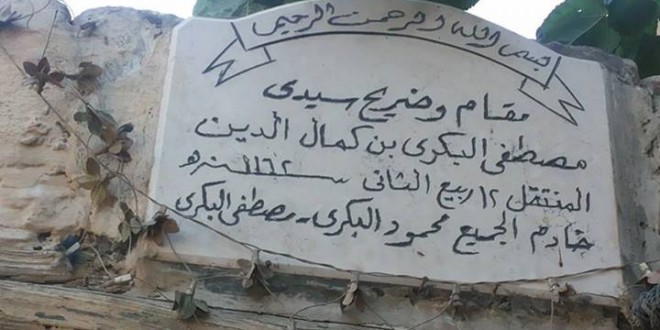 بسم الله الرحمن الرحيم
مقام وضريح سيدى
مصطفى البكرى بن كمال الدين
المنتقل ١٢ ربيع الثانى سنة ١١٦٢ هـ
خادم الجميع محمود البكرى - مصطفى البكرى